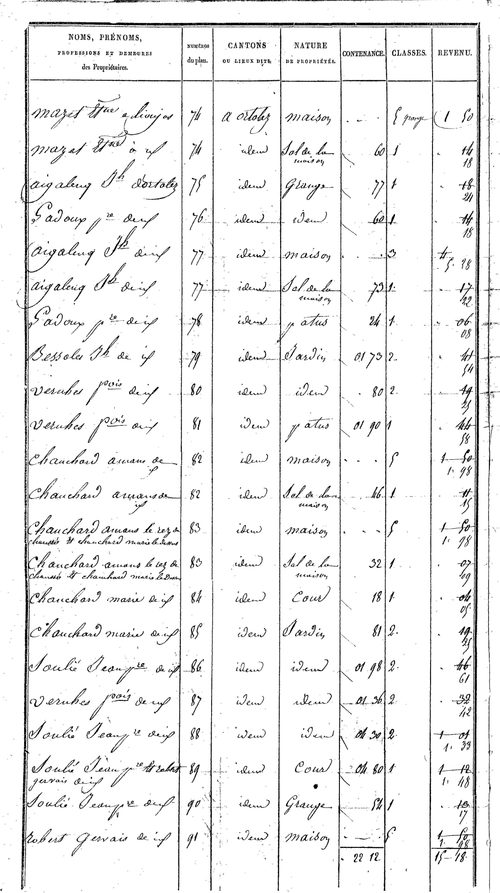 NOMS, PRÉNOMS, PROFESSIONS ET DEMEURES des Propriétaires. NUMÉROS du plan. CANTONS OU LIEUX DITS. NATURE DE PROPRIÉTÉS. CONTENANCE. CLASSES. REVENU.
mazet 74 a ortolez maison 5 1 50
mazet 74 idem Sol de la maison 60 1 14 18
aigaleng Jh d'ortolez 75 idem Grange 77 1 18 24
Gadoux pre 76 idem idem 60 1 14 18
aigaleng Jh 77 idem maison 3 4 5. 28
aigaleng Jh 77 idem Sol de la maison 73 1 17 22
Gadoux pre 78 idem patus 24 1 06 08
Bessoles Jh de 79 idem Jardin 01 73 2 41 54
Veruhes pois 80 idem idem 80 2 19 25
Veruhes pois 81 idem patus 01 90 1 44 58
Chauchard amans de 82 idem maison 5 1 50 1. 98
Chauchard amans de 82 idem Sol de la maison 46 1 11 15
Chauchard amans le rez de chaussée et chauchard marie le dessus 83 idem maison 5 1 50 1. 98
Chauchard amans le rez de chaussée et chauchard marie le dessus 83 idem Sol de la maison 32 1 07 09
Chauchard marie 84 idem Cour 18 1 04 05
Chauchard marie 85 idem Jardin 81 2 19 25
Soulié Jean pre 86 idem idem 01 98 2 46 61
Veruhes pois 87 idem idem 01 36 2 32 42
Soulié Jean pre 88 idem idem 04 30 2 1 01 1. 33
Soulié Jean pre et robert gervais 89 idem Cour 04 80 1 1 12 1. 48
Soulié Jean pre 90 idem Grange 54 1 13 17
robert Gervais 91 idem maison 5 1 50 1. 98
22 12 15 18